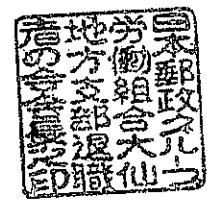 日本郵政グループ
労働組合大仙
地方支部退職
者の会会長之印